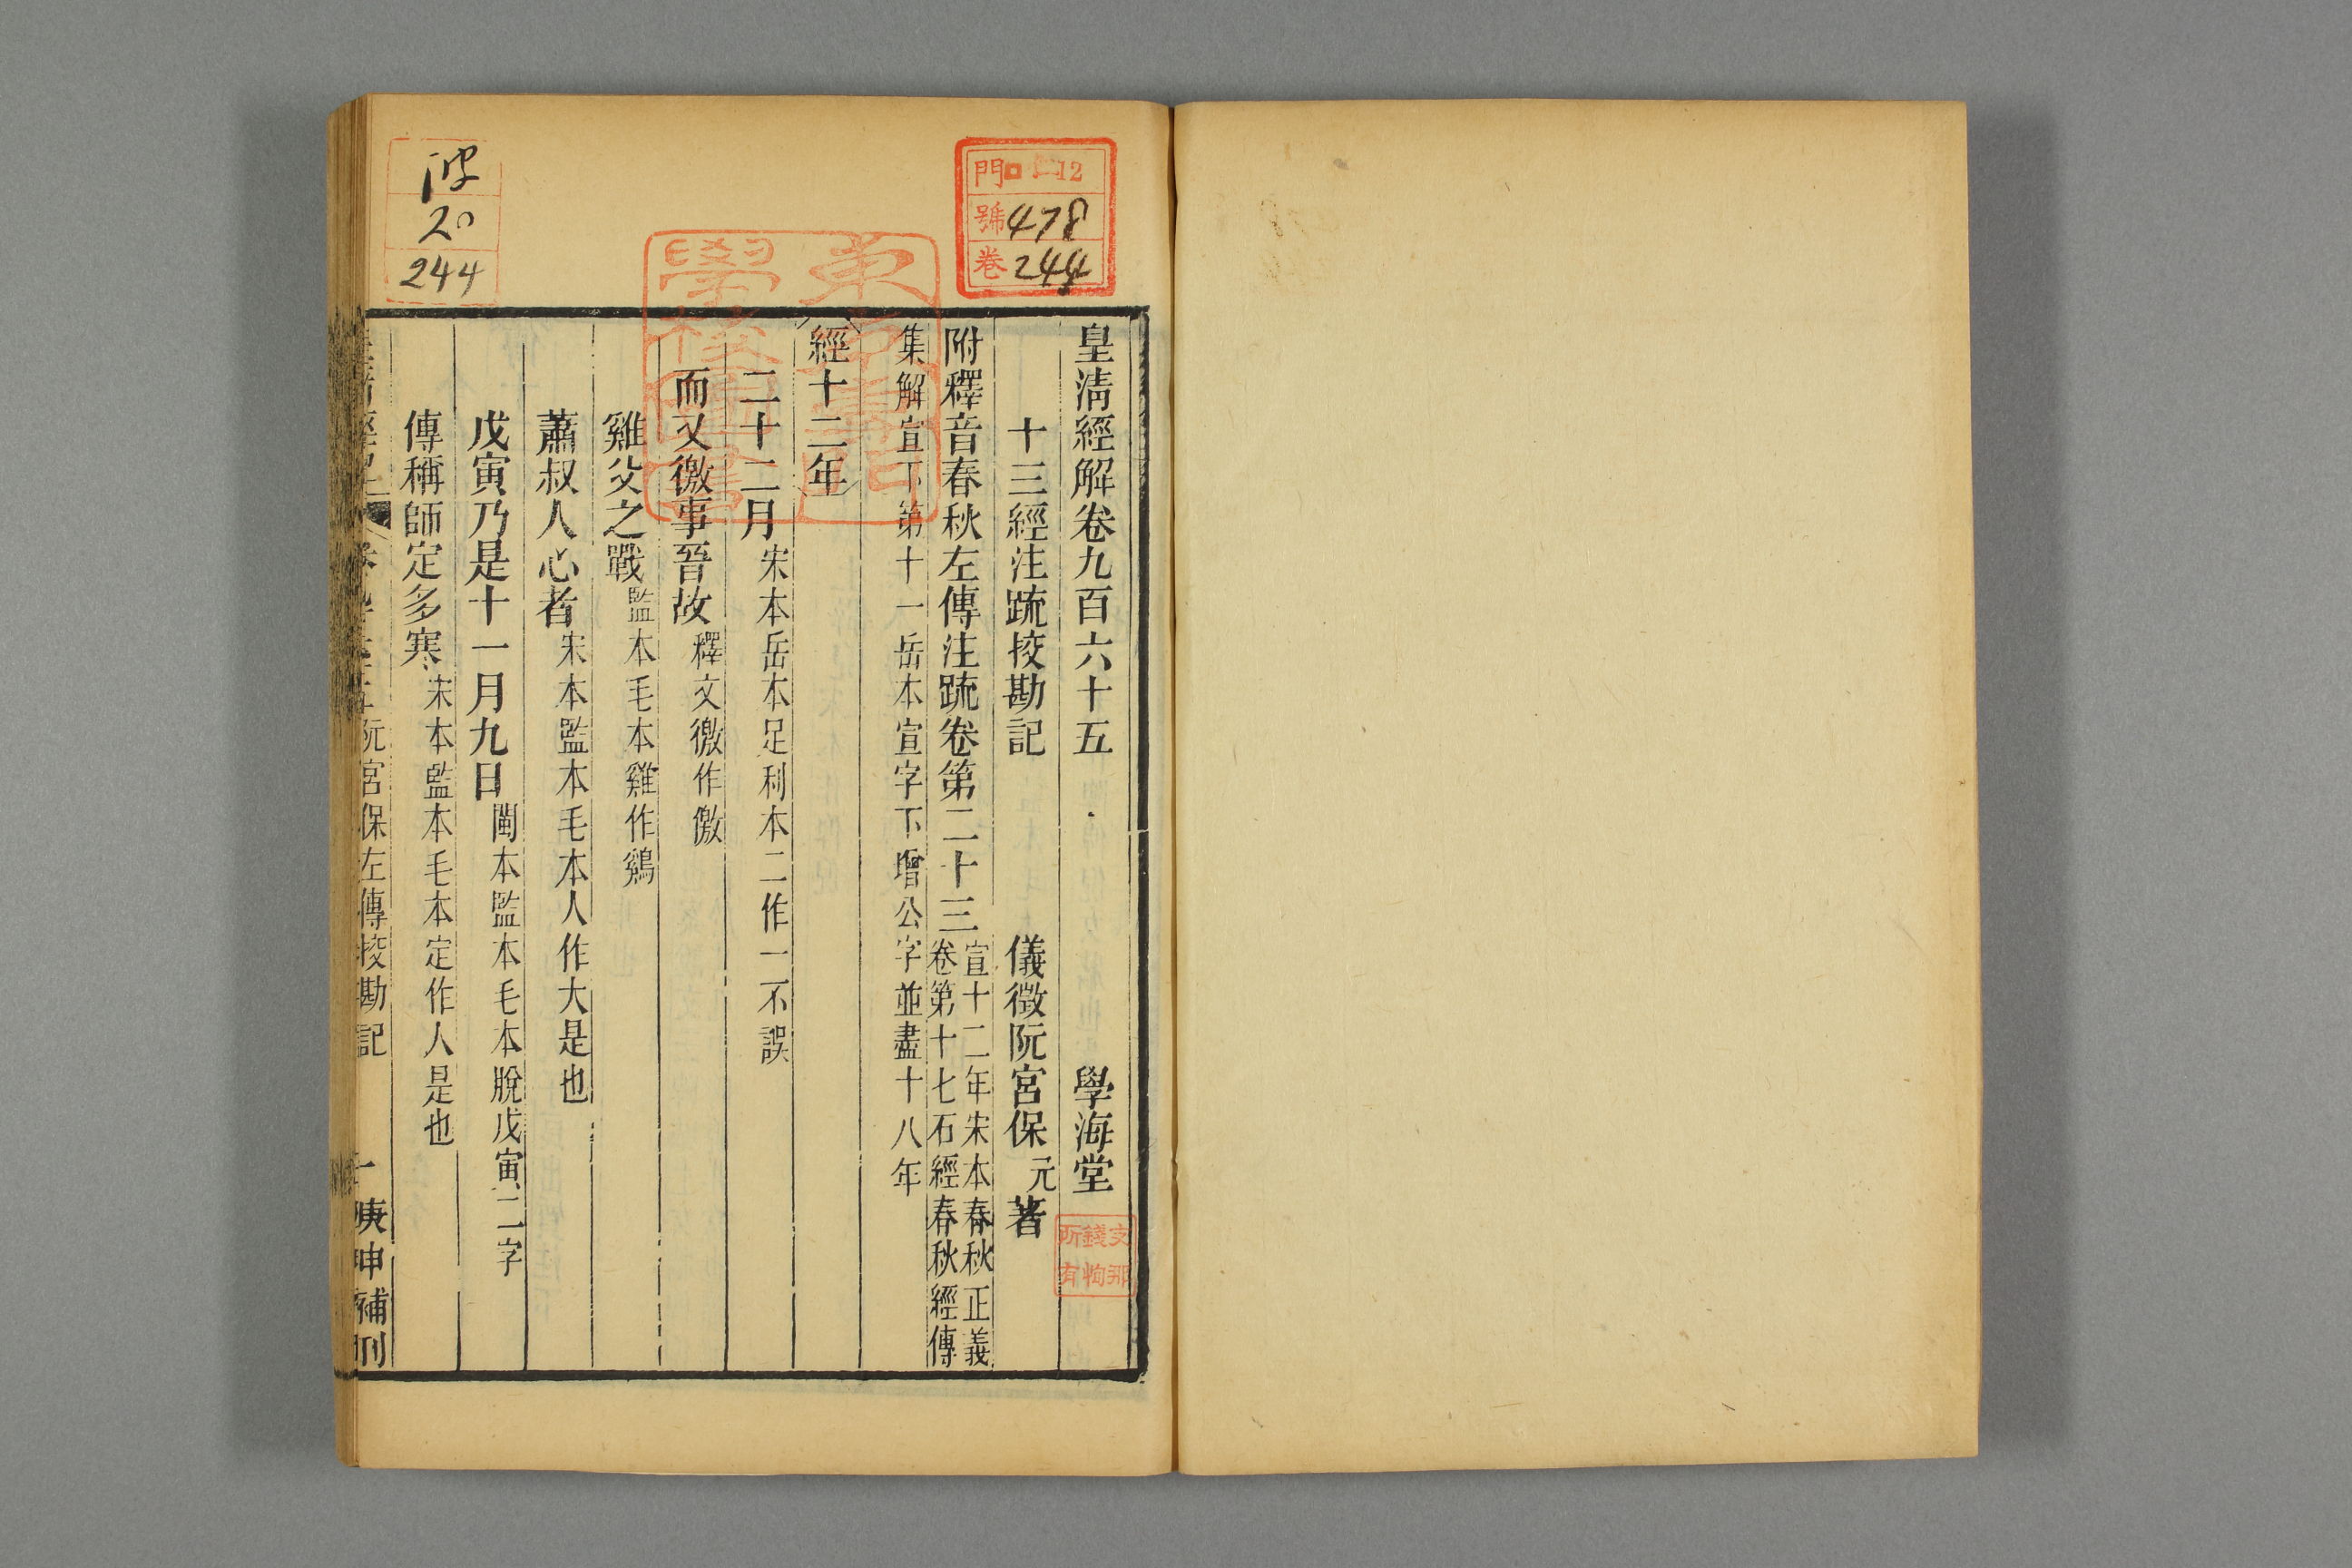 皇清經解卷九百六十五 學海堂
十三經注疏挍勘記 儀徵阮宮保元著
附釋音春秋左傳注疏卷第二十三 宣十二年宋本春秋正義
卷第十七石經春秋經傳
集解宣下第十一岳本宣字下增公字並盡十八年
經十二年
二十二月 宋本岳本足利本二作一不誤
而又徼事晉故 釋文徼作儌
雞父之戰 監本毛本雞作鷄
蕭叔人心者 宋本監本毛本人作大是也
戊寅乃是十一月九日 閩本監本毛本脫戊寅二字
傳稱師定多寒 宋本監本毛本定作人是也
阮宮保左傳挍勘記 一 庚申補刊
門 12
號 478
卷 244
波
20
244